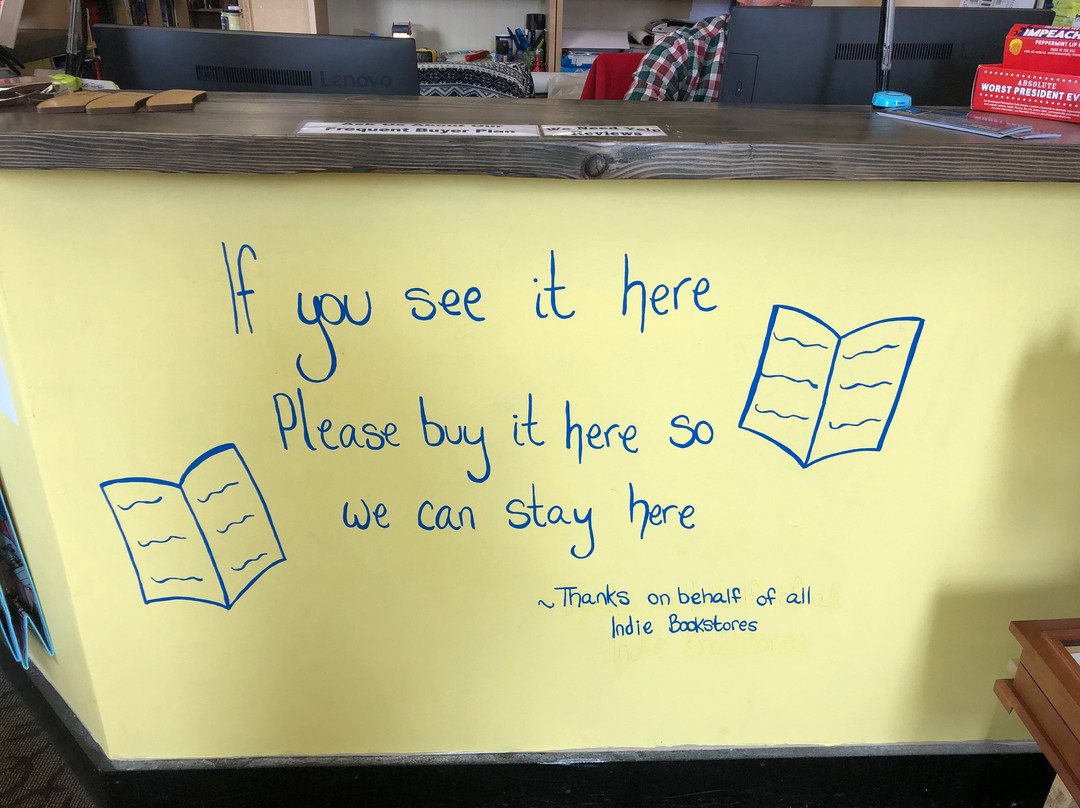 Lenovo
IMPEACH
PEPPERMINT LIP
ABSOLUTE
WORST PRESIDENT EV
Ask Us About Our
Frequent Buyer Plan
We Need Yelp
Reviews
If you see it here
Please buy it here so
we can stay here
~Thanks on behalf of all
Indie Bookstores